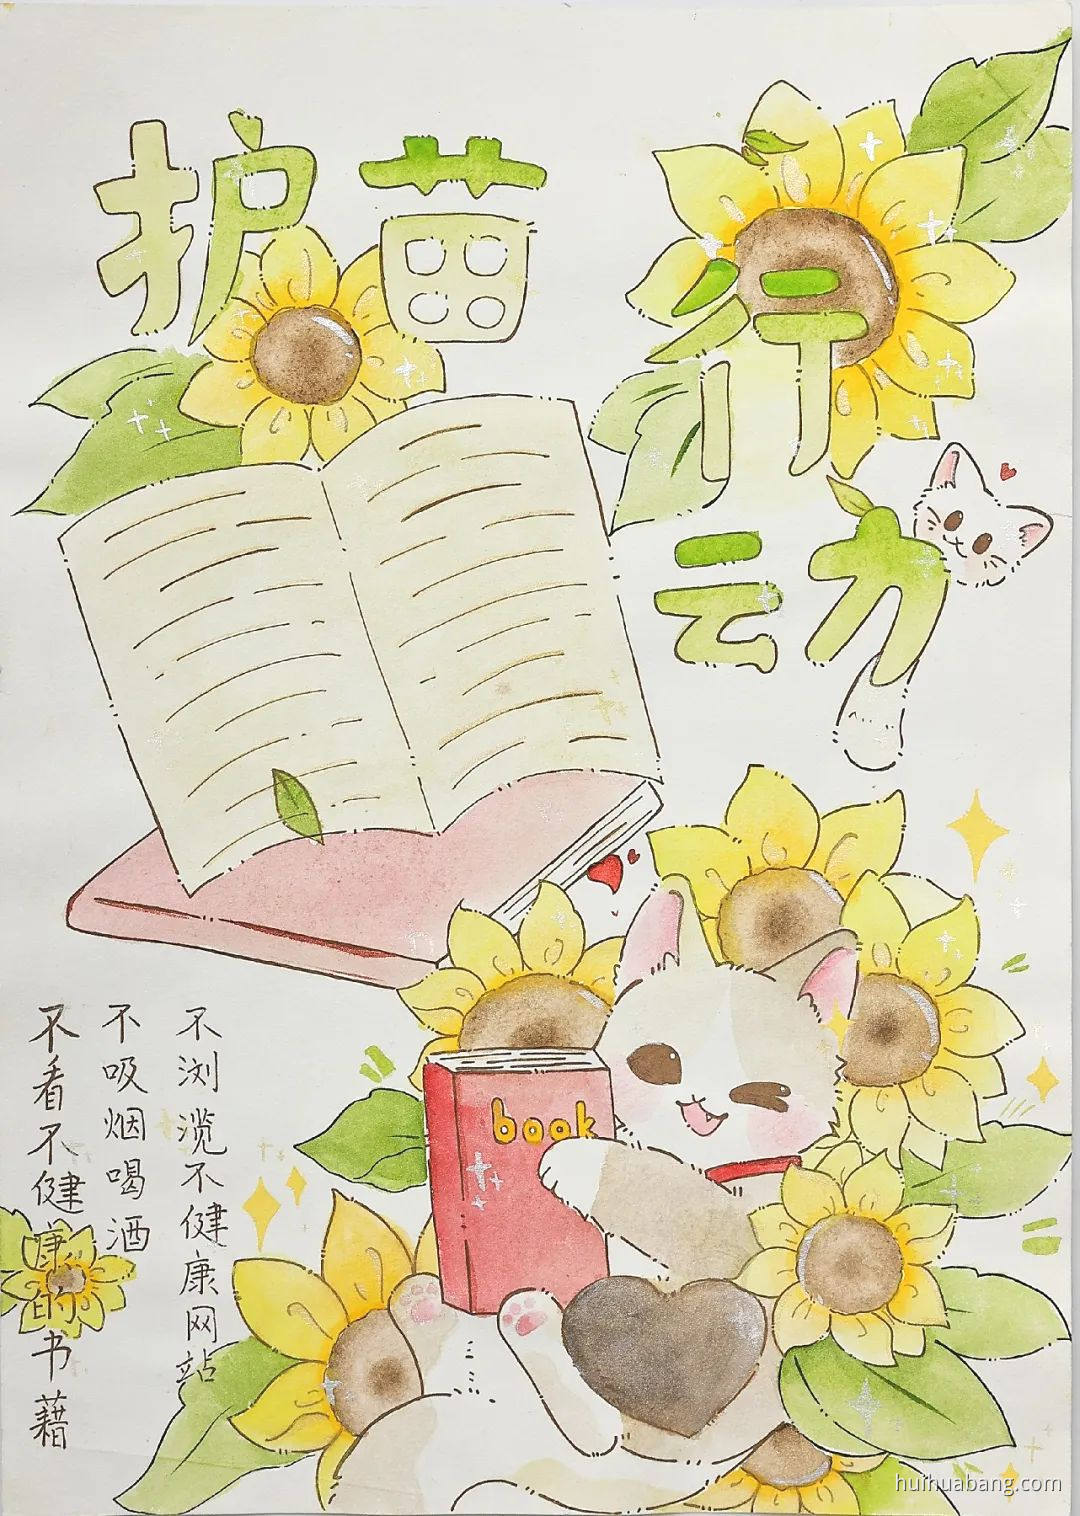 护苗行
动
book
不浏览不健康网站
不吸烟喝酒
不看不健康的书藉
huihuabang.com